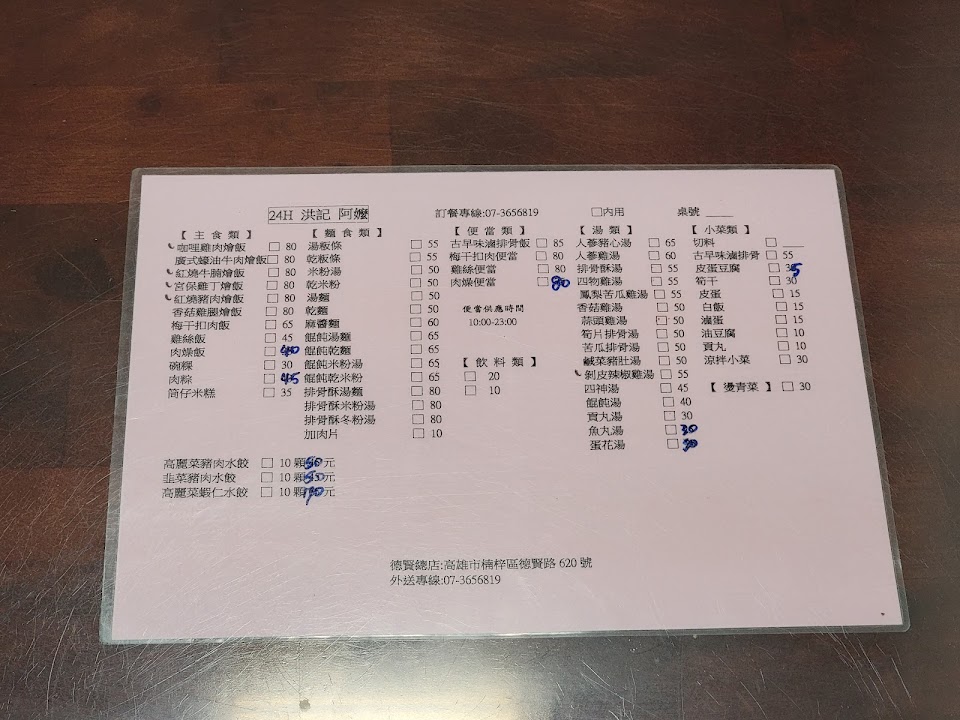 24H 洪記 阿嬤
訂餐專線:07-3656819
□內用
桌號 ____
【 主 食 類 】
咖哩雞肉燴飯 □ 80
廣式蠔油牛肉燴飯 □ 80
紅燒牛腩燴飯 □ 80
宮保雞丁燴飯 □ 80
紅燒豬肉燴飯 □ 80
香菇雞腿燴飯 □ 80
梅干扣肉飯 □ 65
雞絲飯 □ 45
肉燥飯 □
碗粿 □ 30
肉粽 □
筒仔米糕 □ 35
【 麵 食 類 】
湯粄條 □ 55
乾粄條 □ 55
米粉湯 □ 50
乾米粉 □ 50
湯麵 □ 50
乾麵 □ 50
麻醬麵 □ 60
餛飩湯麵 □ 65
餛飩乾麵 □ 65
餛飩米粉湯 □ 65
餛飩乾米粉 □ 65
排骨酥湯麵 □ 80
排骨酥米粉湯 □ 80
排骨酥冬粉湯 □ 80
加肉片 □ 10
【 便 當 類 】
古早味滷排骨飯 □ 85
梅干扣肉便當 □ 80
雞絲便當 □ 80
肉燥便當 □ 80
便當供應時間
10:00-23:00
【 飲 料 類 】
□ 20
□ 10
【 湯 類 】
人蔘豬心湯 □ 65
人蔘雞湯 □ 60
排骨酥湯 □ 55
四物雞湯 □ 55
鳳梨苦瓜雞湯 □ 55
香菇雞湯 □ 50
蒜頭雞湯 □ 50
筍片排骨湯 □ 50
苦瓜排骨湯 □ 50
鹹菜豬肚湯 □ 50
剝皮辣椒雞湯 □ 55
四神湯 □ 45
餛飩湯 □ 40
貢丸湯 □ 30
魚丸湯 □ 30
蛋花湯 □ 30
【 小菜類 】
切料 □ ____
古早味滷排骨 □ 55
皮蛋豆腐 □ 35
筍干 □ 30
皮蛋 □ 15
白飯 □ 15
滷蛋 □ 15
油豆腐 □ 10
貢丸 □ 10
涼拌小菜 □ 30
【 燙青菜 】 □ 30
高麗菜豬肉水餃 □ 10 顆 元
韭菜豬肉水餃 □ 10 顆 元
高麗菜蝦仁水餃 □ 10 顆 元
德賢總店:高雄市楠梓區德賢路 620 號
外送專線:07-3656819